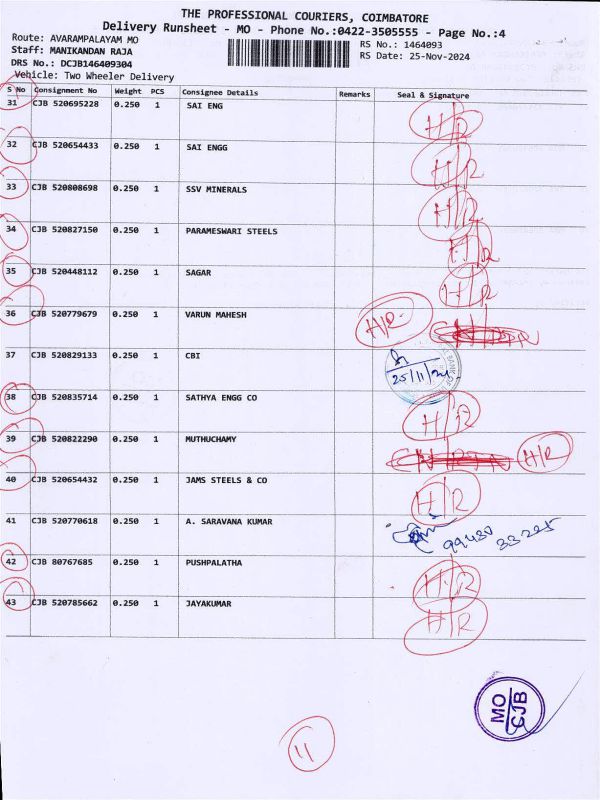 THE PROFESSIONAL COURIERS, COIMBATORE
Delivery Runsheet - MO - Phone No.:0422-3505555 - Page No.:4
Route: AVARAMPALAYAM MO
RS No.: 1464093
Staff: MANIKANDAN RAJA
RS Date: 25-Nov-2024
DRS No.: DCJB146409304
Vehicle: Two Wheeler Delivery
S No Consignment No Weight PCS Consignee Details Remarks Seal & Signature
31 CJB 520695228 0.250 1 SAI ENG H/R
32 CJB 520654433 0.250 1 SAI ENGG H/R
33 CJB 520808698 0.250 1 SSV MINERALS H/R
34 CJB 520827150 0.250 1 PARAMESWARI STEELS H/R
35 CJB 520448112 0.250 1 SAGAR H/R
36 CJB 520779679 0.250 1 VARUN MAHESH H/R
37 CJB 520829133 0.250 1 CBI 25/11/24
38 CJB 520835714 0.250 1 SATHYA ENGG CO H/R
39 CJB 520822290 0.250 1 MUTHUCHAMY H/R
40 CJB 520654432 0.250 1 JAMS STEELS & CO H/R
41 CJB 520770618 0.250 1 A. SARAVANA KUMAR 99430 33225
42 CJB 80767685 0.250 1 PUSHPALATHA H/R
43 CJB 520785662 0.250 1 JAYAKUMAR H/R
MO
CJB
11